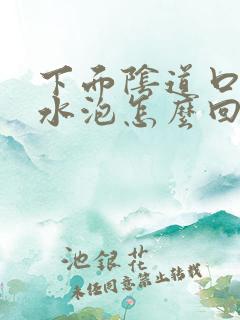 下面陰道口
水泡怎麼回
池銀花
未经同意禁止转载